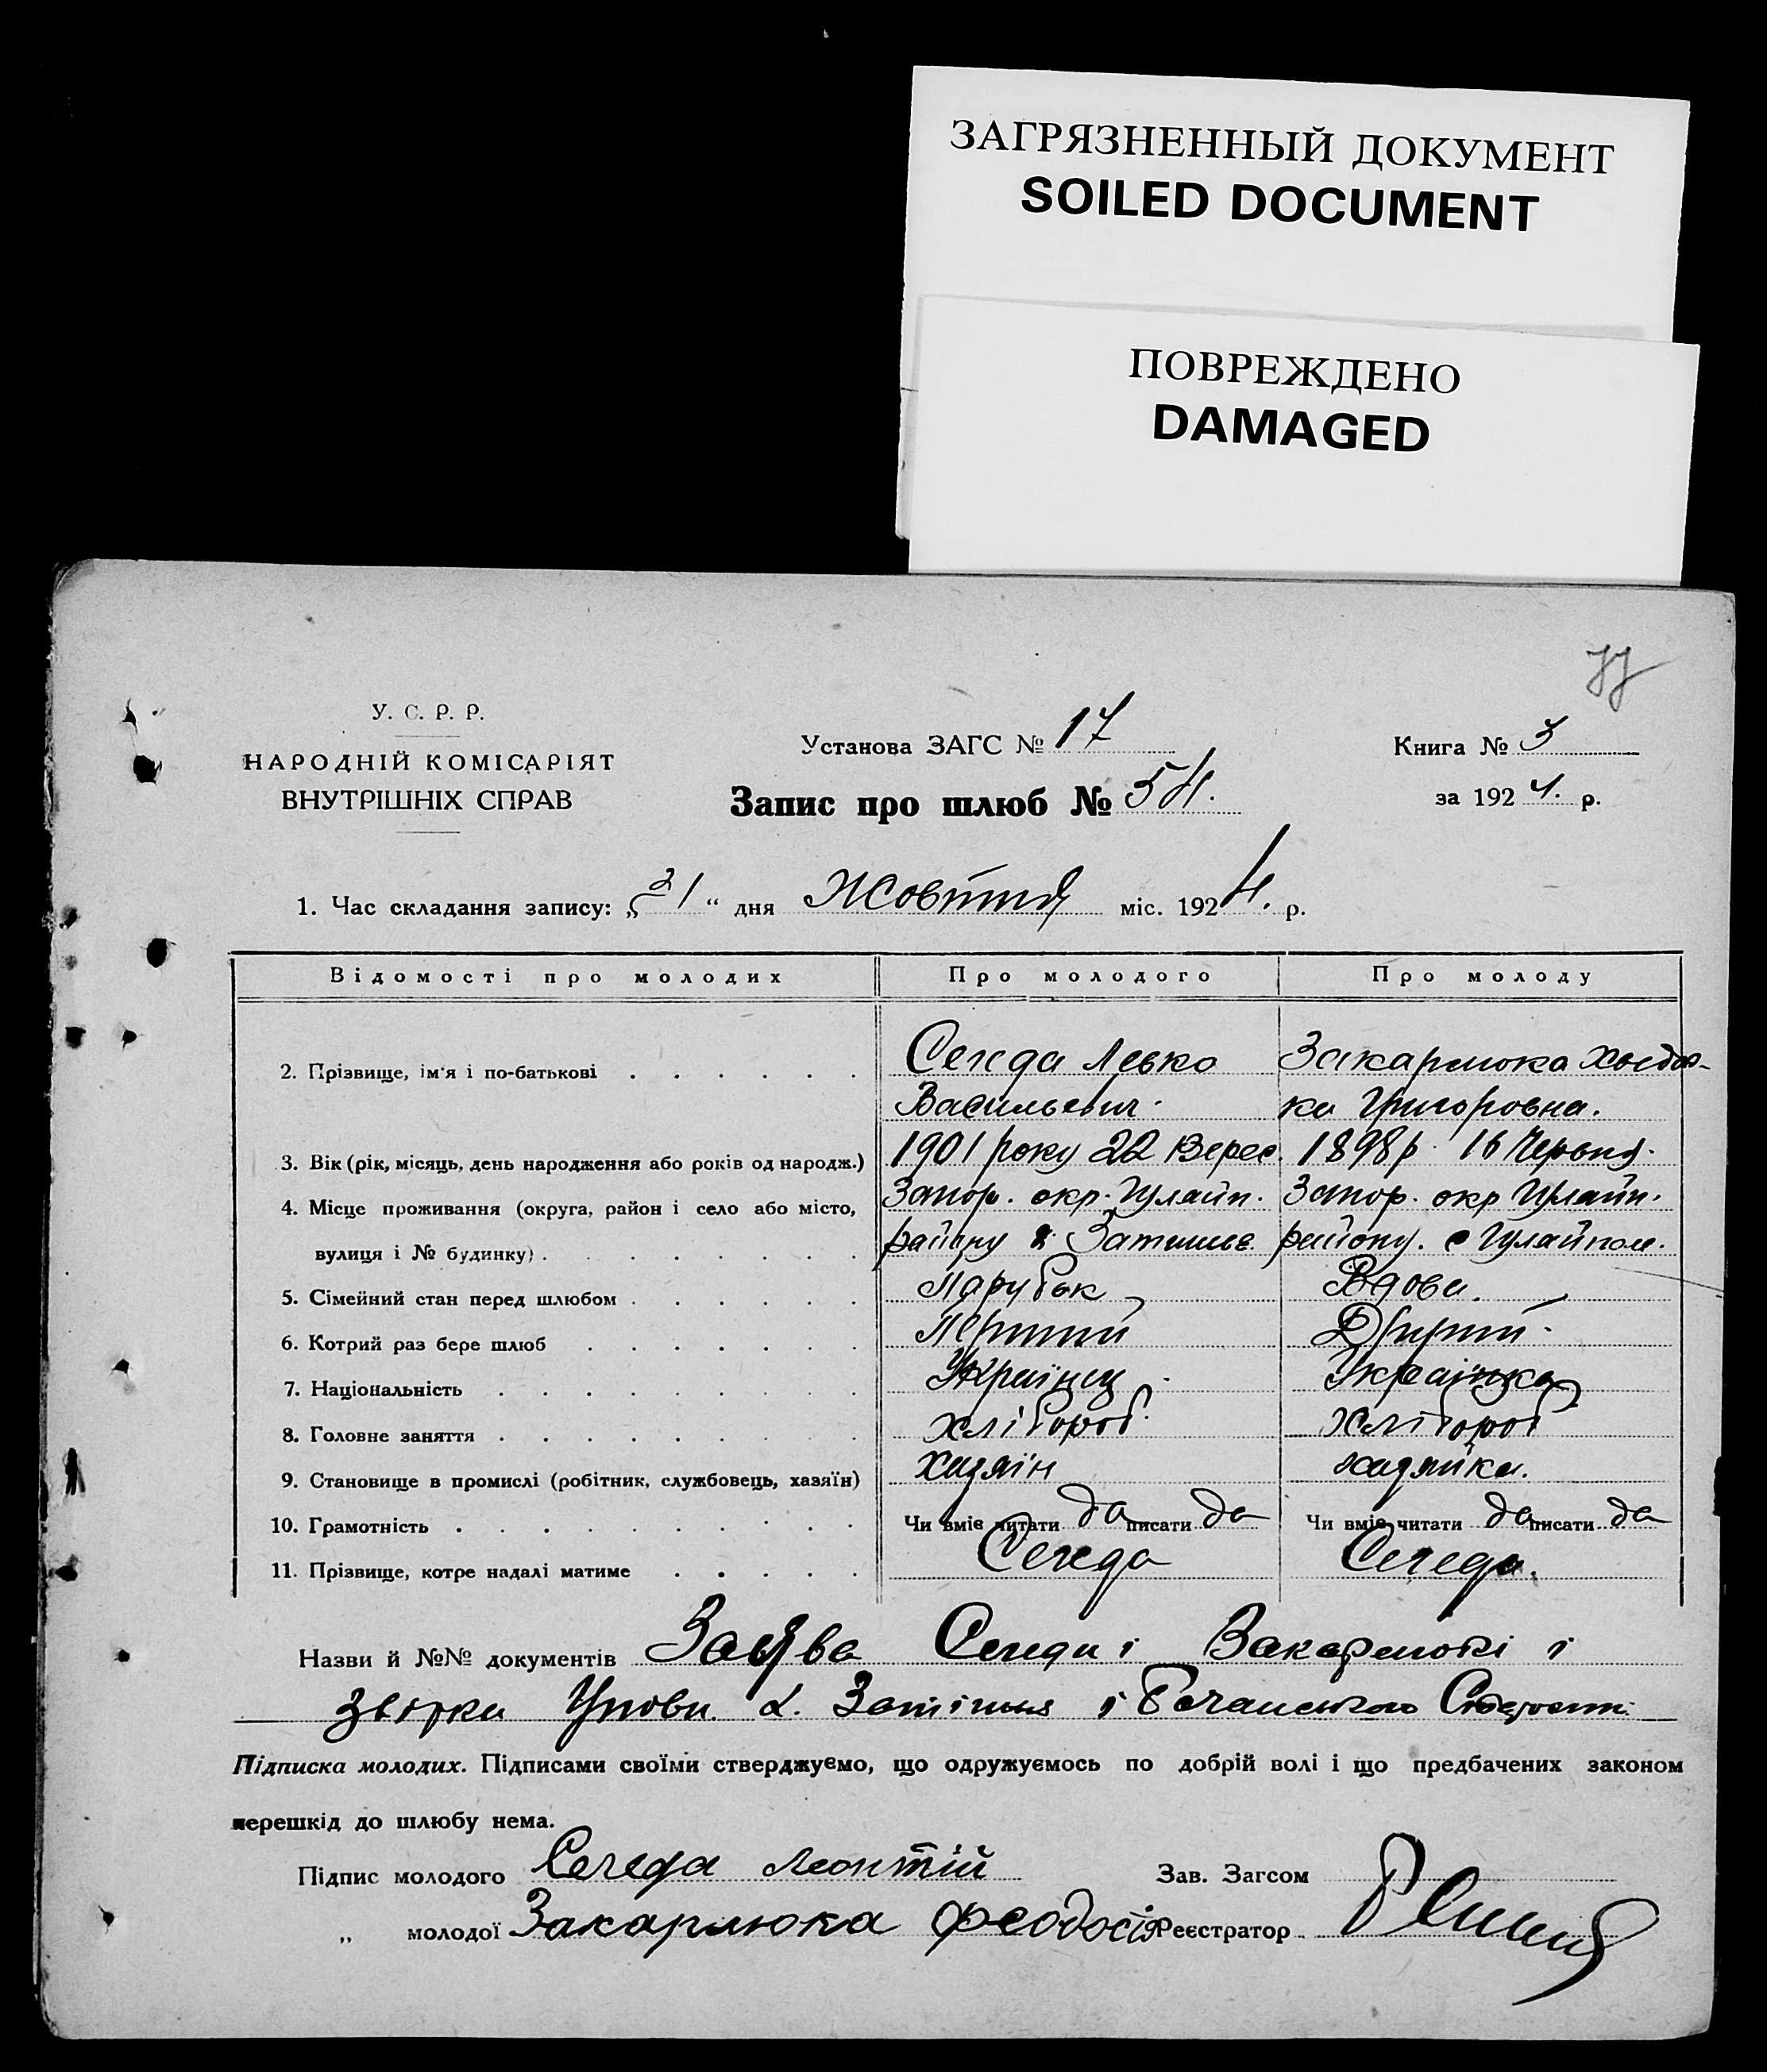 ЗАГРЯЗНЕННЫЙ ДОКУМЕНТ
SOILED DOCUMENT
ПОВРЕЖДЕНО
DAMAGED
У. С. Р. Р.
НАРОДНІЙ КОМІСАРІЯТ
ВНУТРІШНІХ СПРАВ
Установа ЗАГС № 17
Запис про шлюб № 54.
Книга № 3
за 1924. р.
1. Час складання запису: „21“ дня Жовтня міс. 1924. р.
Відомості про молодих Про молодого Про молоду
2. Прізвище, ім'я і по-батькові Середа Левко Закарлюка Хведос-
Васильевич. ка Григоровна.
3. Вік (рік, місяць, день народження або років од народж.) 1901 року 22 Верес. 1898 р. 16 Червня.
4. Місце проживання (округа, район і село або місто, Запор. окр. Гуляйп. Запор. окр Гуляйп.
вулиця і № будинку) району Затишье. району. с Гуляйполе.
5. Сімейний стан перед шлюбом Парубок Вдова.
6. Котрий раз бере шлюб Перший Другий.
7. Національність Українец Українка
8. Головне заняття хлібороб. хлібороб
9. Становище в промислі (робітник, службовець, хазяїн) Хазяїн хазяйка.
10. Грамотність Чи вміє читати да писати да Чи вміє читати да писати да
11. Прізвище, котре надалі матиме Середа Середа.
Назви й №№ документів Заява Середи і Закарлюкі і
Затішья і
Підписка молодих. Підписами своїми стверджуємо, що одружуємось по добрій волі і що предбачених законом
перешкід до шлюбу нема.
Підпис молодого Середа Леонтій Зав. Загсом
„ молодої Закарлюка Феодосія Реєстратор